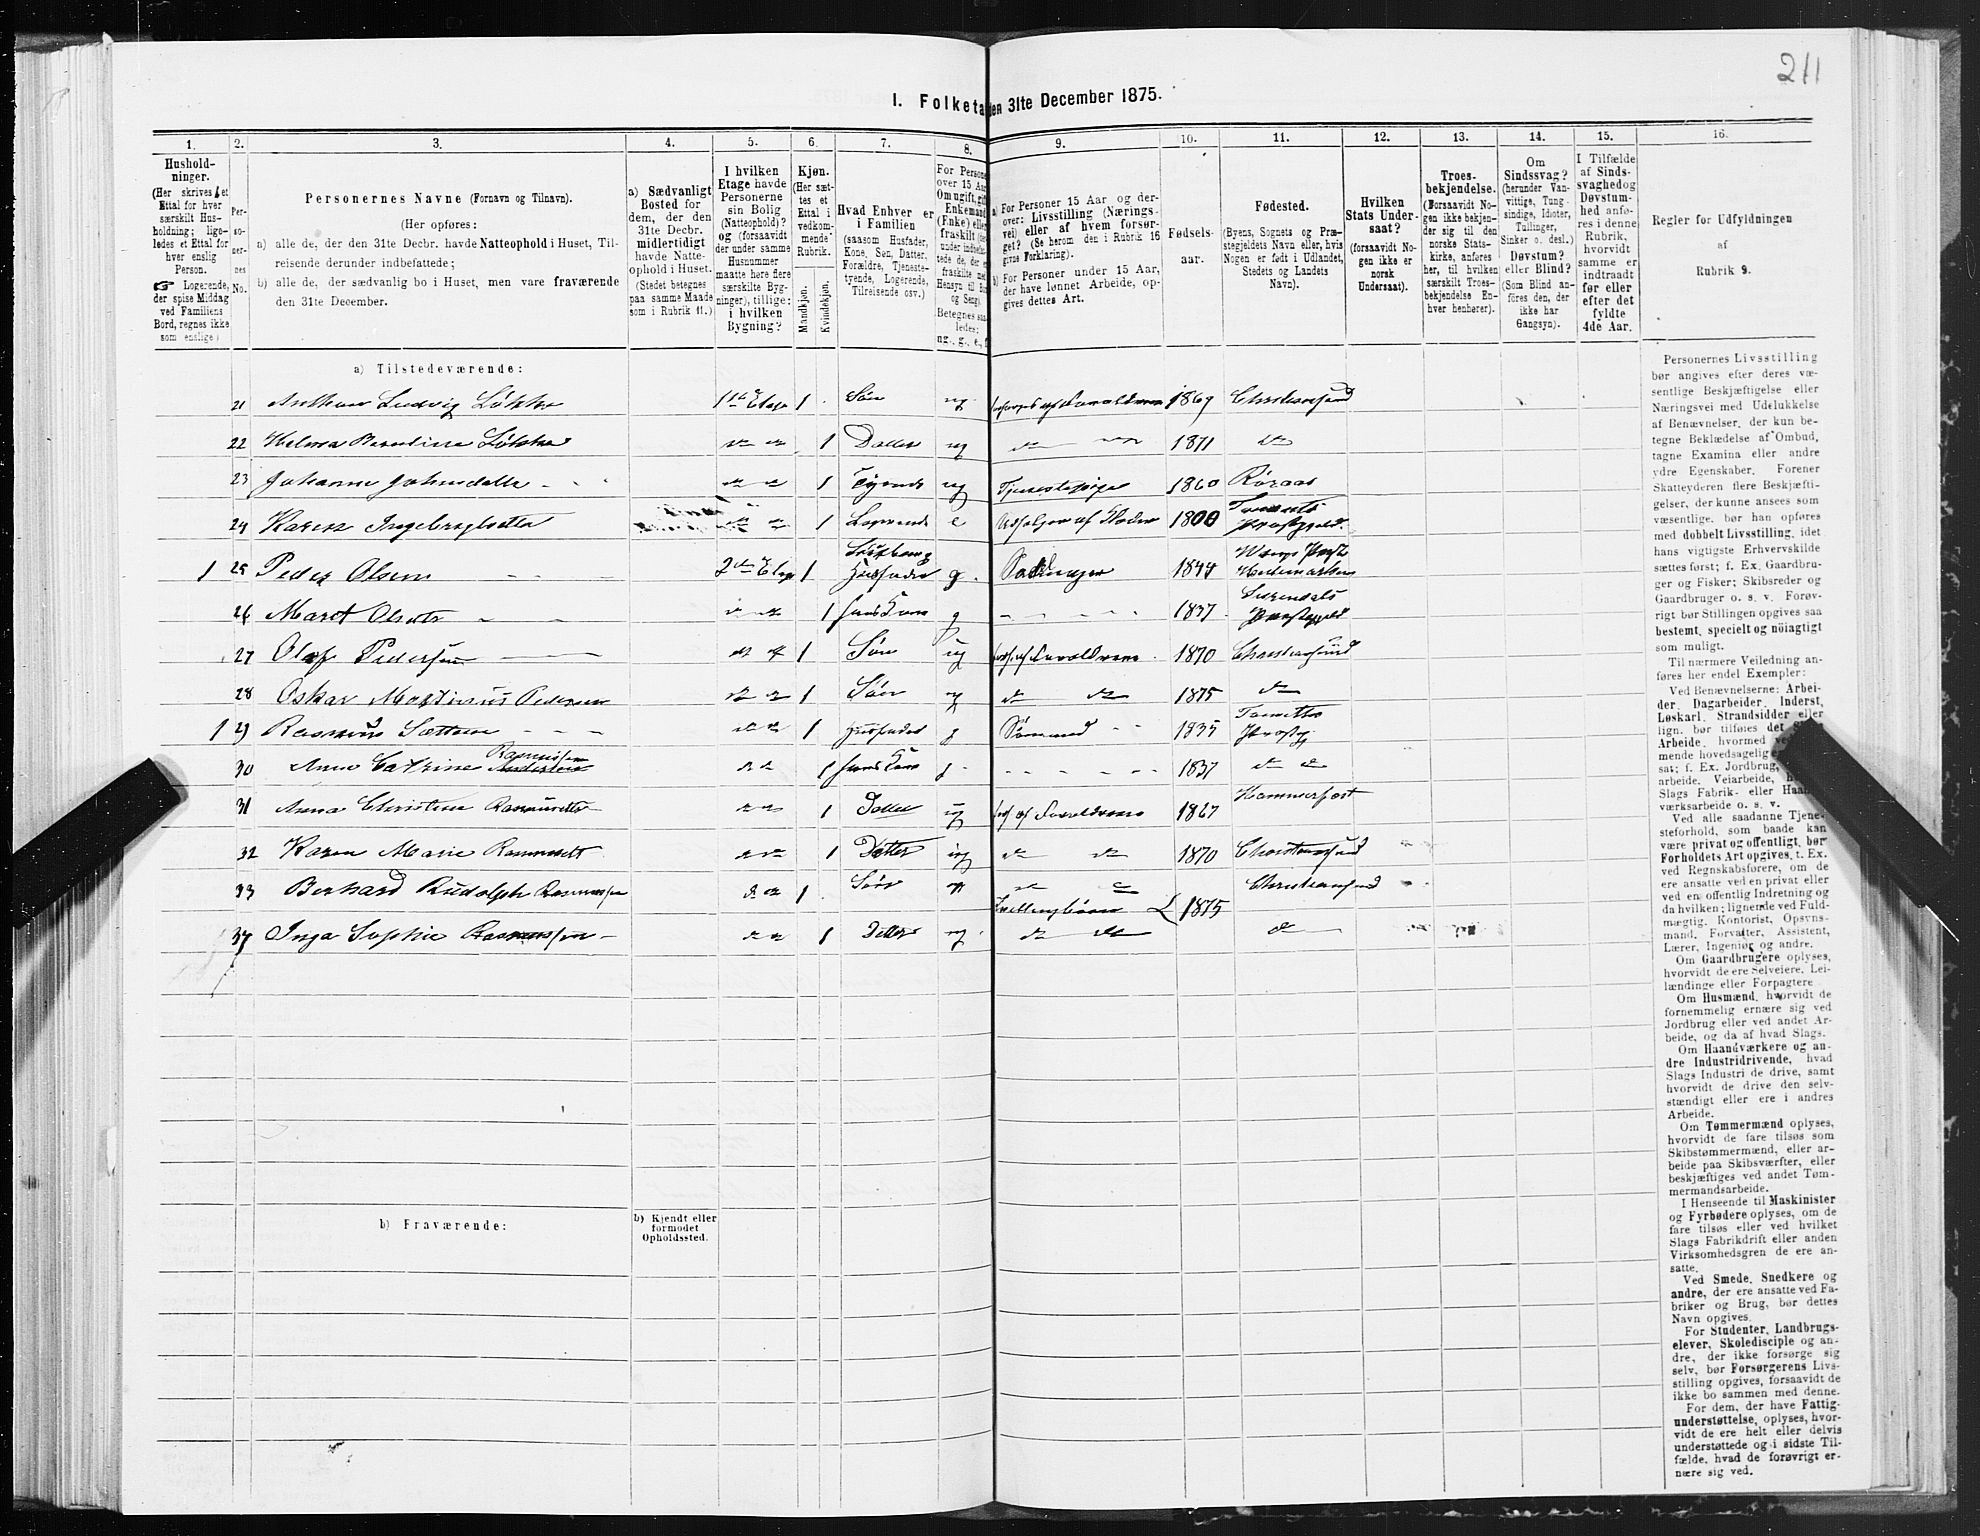 211
I. Folketa
den 31te December 1875.
1. 2. 3. 4. 5. 6. 7. 8. 9. 10. 11. 12. 13. 14. 15. 16.
Hushold-
ninger.
(Her skrives et
Ettal for hver
særskilt Hus-
holdning; lige-
ledes et Ettal for
hver enslig
Person.
☞ Logerende,
der spise Middag
ved Familiens
Bord, regnes ikke
som enslige)
Per-
so-
ner-
nes
No.
Personernes Navne (Fornavn og Tilnavn).
(Her opføres:
a) alle de, der den 31te Decbr. havde Natteophold i Huset, Til-
reisende derunder indbefattede;
b) alle de, der sædvanlig bo i Huset, men vare fraværende
den 31te December.
a) Sædvanligt
Bosted for
dem, der den
31te Decbr.
midlertidigt
havde Natte-
ophold i Huset.
(Stedet betegnes
paa samme Maade
som i Rubrik 11.)
I hvilken
Etage havde
Personerne
sin Bolig
(Natteophold)?
og (forsaavidt
der under samme
Husnummer
maatte høre flere
særskilte Byg-
ninger), tillige:
i hvilken
Bygning?
Kjøn.
(Her sæt-
tes et
Ettal i
vedkom-
mende
Rubrik.
Mandkjøn.
Kvindekjøn.
Hvad Enhver er
i Familien
(saasom Husfader,
Kone, Søn, Datter,
Forældre, Tjeneste-
tyende, Logerende,
Tilreisende osv.)
For Persone
over 15 Aar
Om ugift, gift
Enkemand
(Enke) eller
fraskilt
under indbefat-
tede de, der e
fraskilte
Hensyn til Bor
og Seng)
Betegnes saa-
ledes:
ug., g., e., f.
a) For Personer 15 Aar og der-
over: Livsstilling (Nærings-
vei) eller af hvem forsør-
get? (Se herom den i Rubrik 16
givne Forklaring).
b) For Personer under 15 Aar,
der have lønnet Arbeide, op-
gives dettes Art.
Fødsels-
aar.
Fødested.
(Byens, Sognets og Præ-
stegjeldets Navn eller, hvis
Nogen er født i Udlandet,
Stedets og Landets
Navn).
Hvilken
Stats Under-
saat?
(forsaavidt No-
gen ikke er
norsk
Undersaat).
Troes-
bekjendelse.
(Forsaavidt No-
gen ikke bekjen-
der sig til den
norske Stats-
kirke, anføres
her, til hvilken
særskilt Troes-
bekjendelse En-
hver henhører).
Om
Sindssvag?
(herunder Van-
vittige, Tung-
sindige, Idioter,
Tullinger,
Sinker o. desl.)
Døvstum?
eller Blind?
(Som Blind an-
føres den, der
ikke har
Gangsyn).
I Tilfælde
af Sinds-
svaghed og
Døvstum-
hed anfø-
res i denne
Rubrik,
hvorvidt
samme er
indtraadt
før eller
efter det
fyldte
4de Aar.
Regler for Udfyldningen
af
Rubrik 9.
a) Tilstedeværende:
21 Ludvig Løkke 1ste Etage 1 Søn ug 1869 Christiansund
22 Løkke do do 1 Datter ug do do 1871 do
23 Johanne do do 1 Tyende ug Tjenestepige 1860 Røraas
24 Karen Ingebrigtsdatter do do 1 Logerende e 1800
1 25 Peder Olsen 2den Etage 1 Husfader g. 1844
26 Maret Olsdtr do do 1 hans Kone g 1837 Surendals
27 Olaf Pedersen do do 1 Søn ug 1870 Christiansund
28 Oskar Martinus Pedersen do do 1 Søn ug do do 1875 do
1 29 Rasmus do do 1 Husfader g Sømand 1835
30 Anne Catrine Rasmussen do do 1 hans Kone g 1837 do do
31 Anna Christine do do 1 Datter ug 1867 Hammerfest
32 Karen Marie do do 1 Datter ug do do 1870 Christiansund
33 Berhard Rudolph Rasmussen do do 1 Søn ug do Christiansund
Tvillingbørn 1875
34 Inga Sophie Rasmussen do do 1 Datter ug. do do do
b) Fraværende:
b) Kjendt eller
formodet
Opholdssted.
Personernes Livsstilling
bør angives efter deres væ-
sentlige Beskjæftigelse eller
Næringsvei med Udelukkelse
af Benævnelser, der kun be-
tegne Beklædelse af Ombud,
tagne Examina eller andre
ydre Egenskaber. Forener
Skatteyderen flere Beskjæfti-
gelser, der kunne ansees som
væsentlige, bør han opføres
med dobbelt Livsstilling, idet
hans vigtigste Erhvervskilde
sættes først; f. Ex. Gaardbru-
ger og Fisker; Skibsreder og
Gaardbruger o. s. v. Forøv-
rigt bør Stillingen opgives saa
bestemt, specielt og nöiagtigt
som muligt.
Til nærmere Veiledning an-
føres her endel Exempler:
Ved Benævnelserne: Arbei-
der, Dagarbeider, Inderst,
Løskarl, Strandsidder eller
lign. bør tilføies det S
Arbeide, hvormed ve
mende hovedsagelig e
sat; f. Ex. Jordbrug,
arbeide, Veiarbeide,
Slags Fabrik- eller Haan
værksarbeide o. s. v.
Ved alle saadanne Tjene-
steforhold, som baade kan
være privat og offentligt, bør
Forholdets Art opgives, t. Ex.
ved Regnskabsførere, om de
ere ansatte ved en privat eller
ved en offentlig Indretning og
da hvilken; lignende ved Fuld-
mægtig, Kontorist, Opsyns-
mand, Forvalter, Assistent,
Lærer, Ingeniør og andre.
Om Gaardbrugere oplyses,
hvorvidt de ere Selveiere, Lei-
lændinge eller Forpagtere
Om Husmænd, hvorvidt de
fornemmelig ernære sig ved
Jordbrug eller ved andet Ar-
beide, og da af hvad Slags.
Om Haandværkere og an-
dre Industridrivende, hvad
Slags Industri de drive, samt
hvorvidt de drive den selv-
stændigt eller ere i andres
Arbeide.
Om Tømmermænd oplyses,
hvorvidt de fare tilsøs som
Skibstømmermænd, eller ar-
beide paa Skibsværfter, eller
beskjæftiges ved andet Tøm-
mermandsarbeide.
I Henseende til Maskinister
og Fyrbødere oplyses, om de
fare tilsøs eller ved hvilket
Slags Fabrikdrift eller anden
Virksomhedsgren de ere an-
satte.
Ved Smede, Snedkere og
andre, der ere ansatte ved Fa-
briker og Brug, bør dettes
Navn opgives.
For Studenter, Landbrugs-
elever, Skoledisciple og an-
dre, der ikke forsørge sig
selv, bør Forsørgerens Livs-
stilling opgives, forsaavidt de
ikke bo sammen med denne.
For dem, der have Fattig-
understøttelse, oplyses, hvor-
vidt de ere helt eller delvis
understøttede og i sidste Til-
fælde, hvad de forøvrigt er-
nære sig ved.